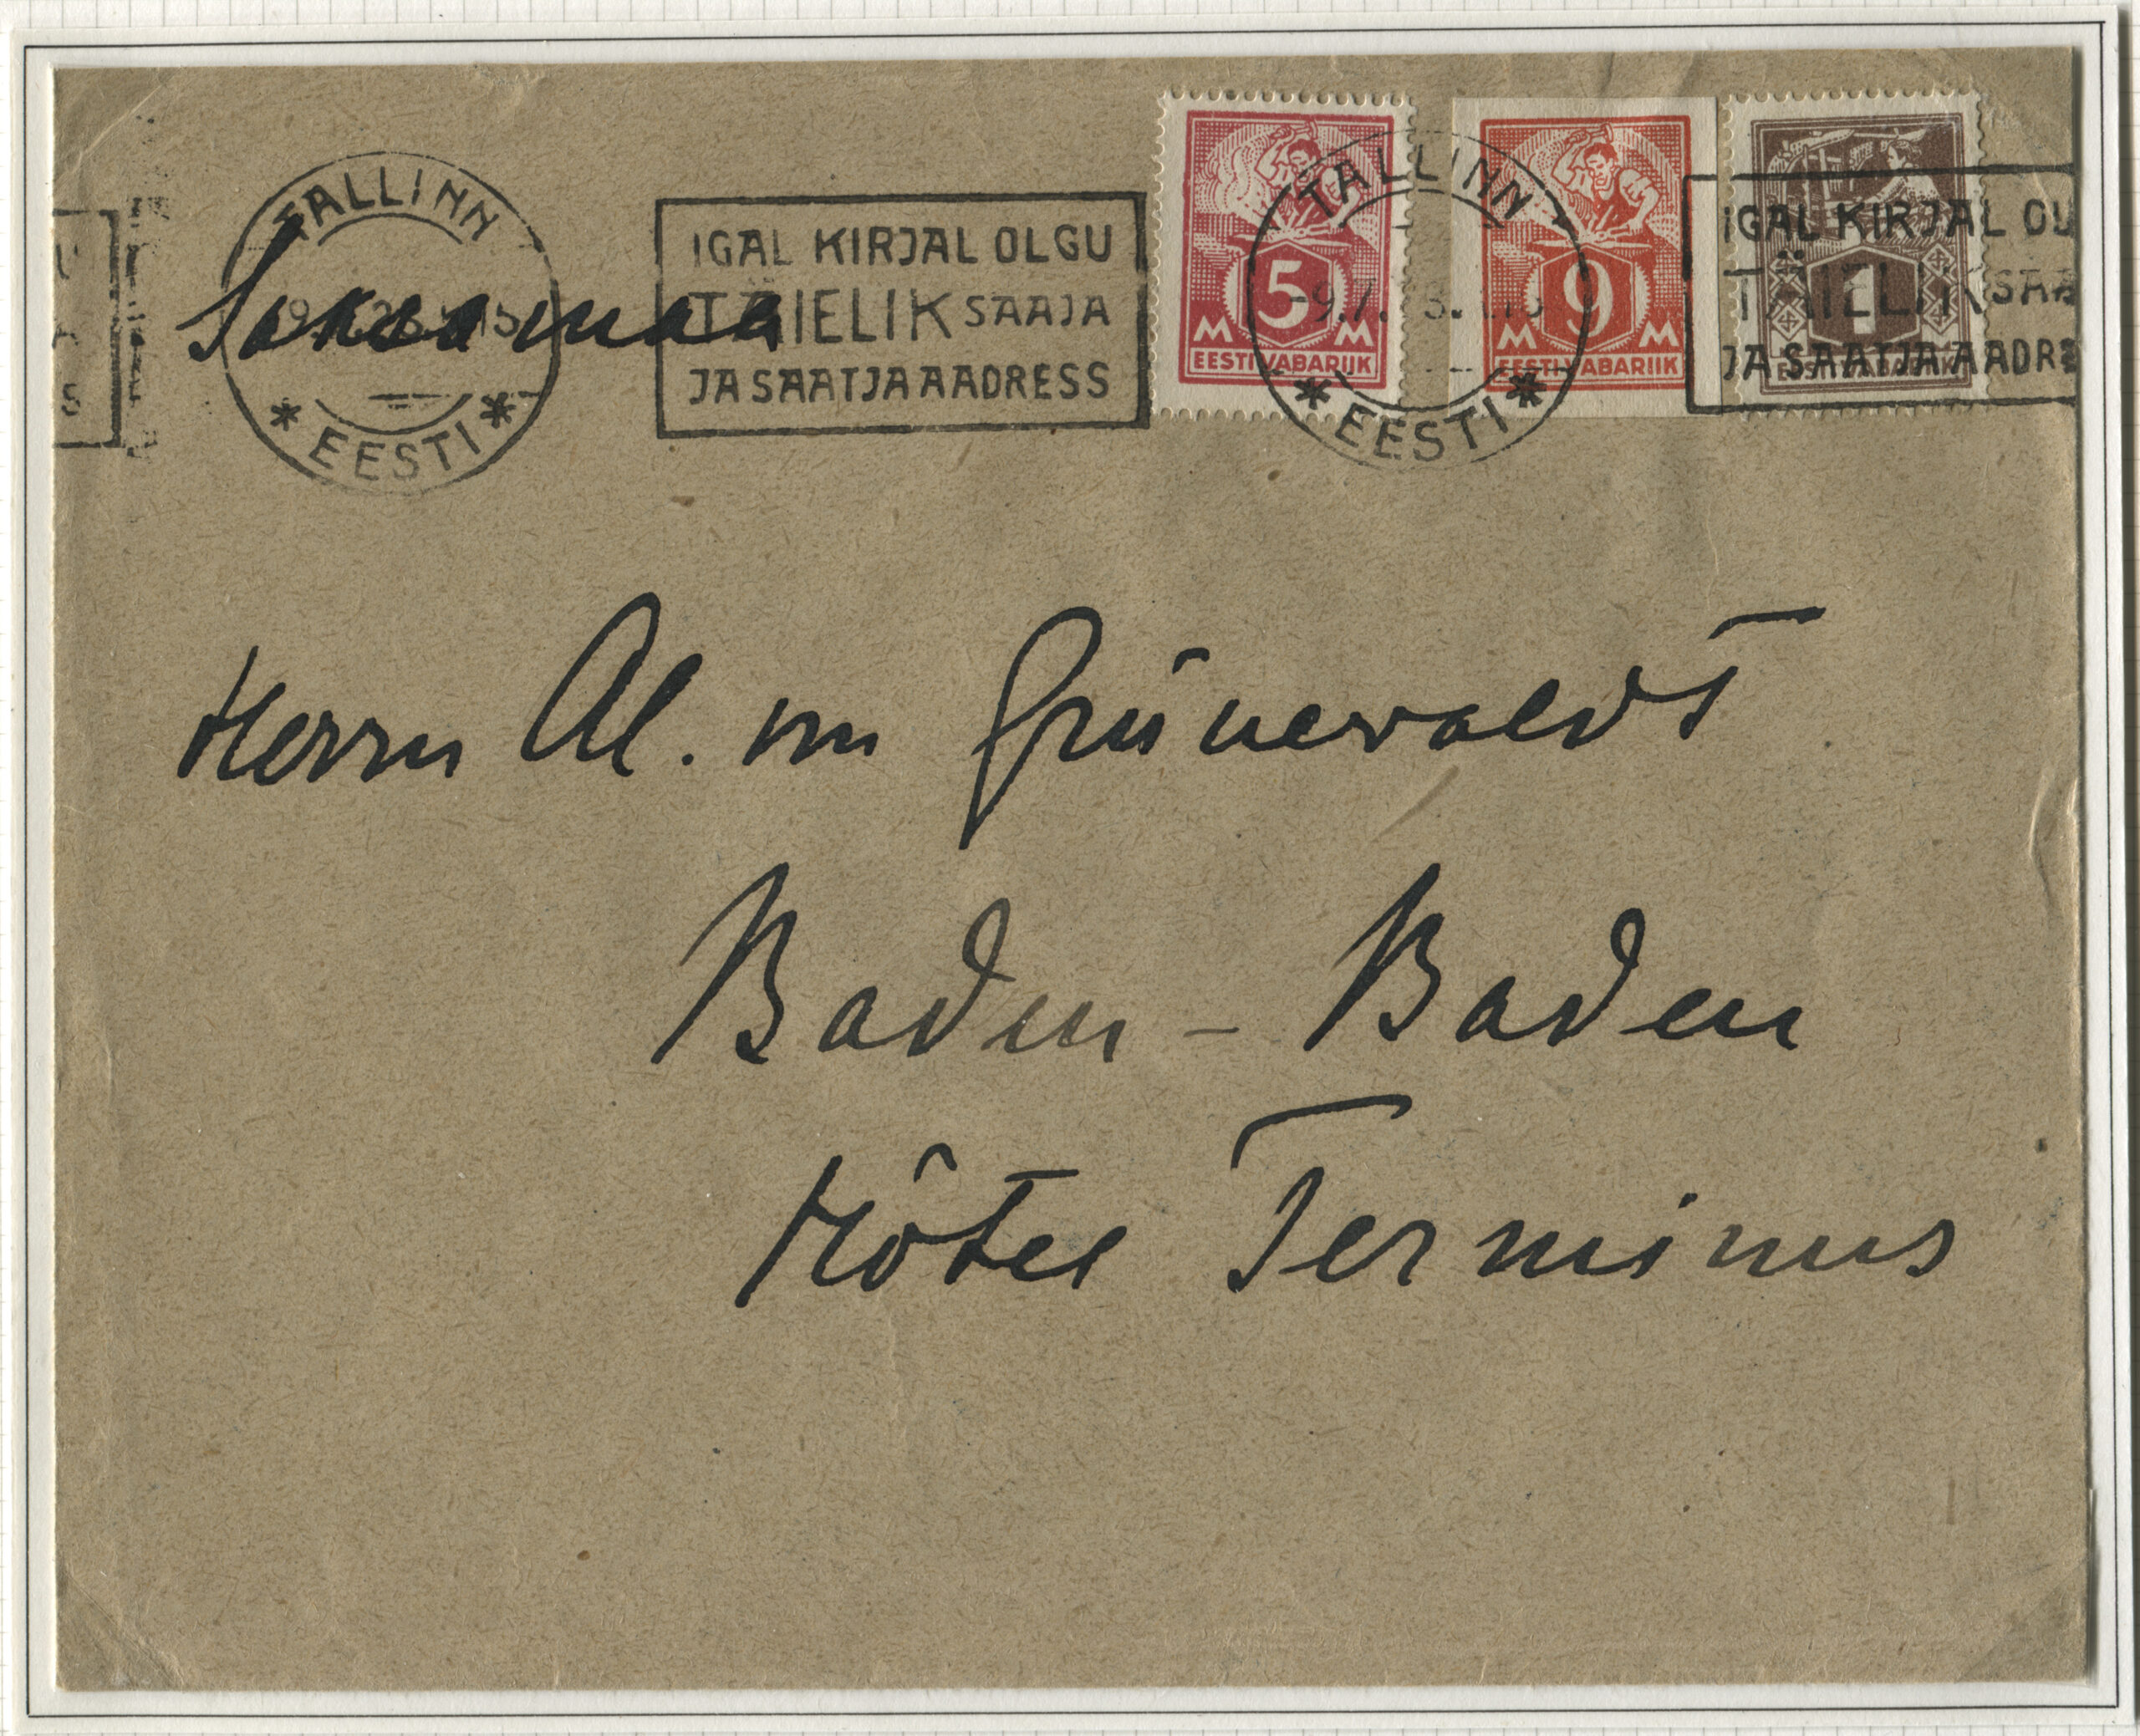 TALLINN
EESTI
Saksamaa
IGAL KIRJAL OLGU
TÄIELIK SAAJA
JA SAATJA AADRESS
5
M M
EESTI VABARIIK
9
M M
EESTI VABARIIK
1
EESTI VABARIIK
TALLINN
EESTI
IGAL KIRJAL OL
TÄIELIK SAA
JA SAATJA AADRE
Herrn Al. von Grünewaldt
Baden - Baden
Hôtel Terminus